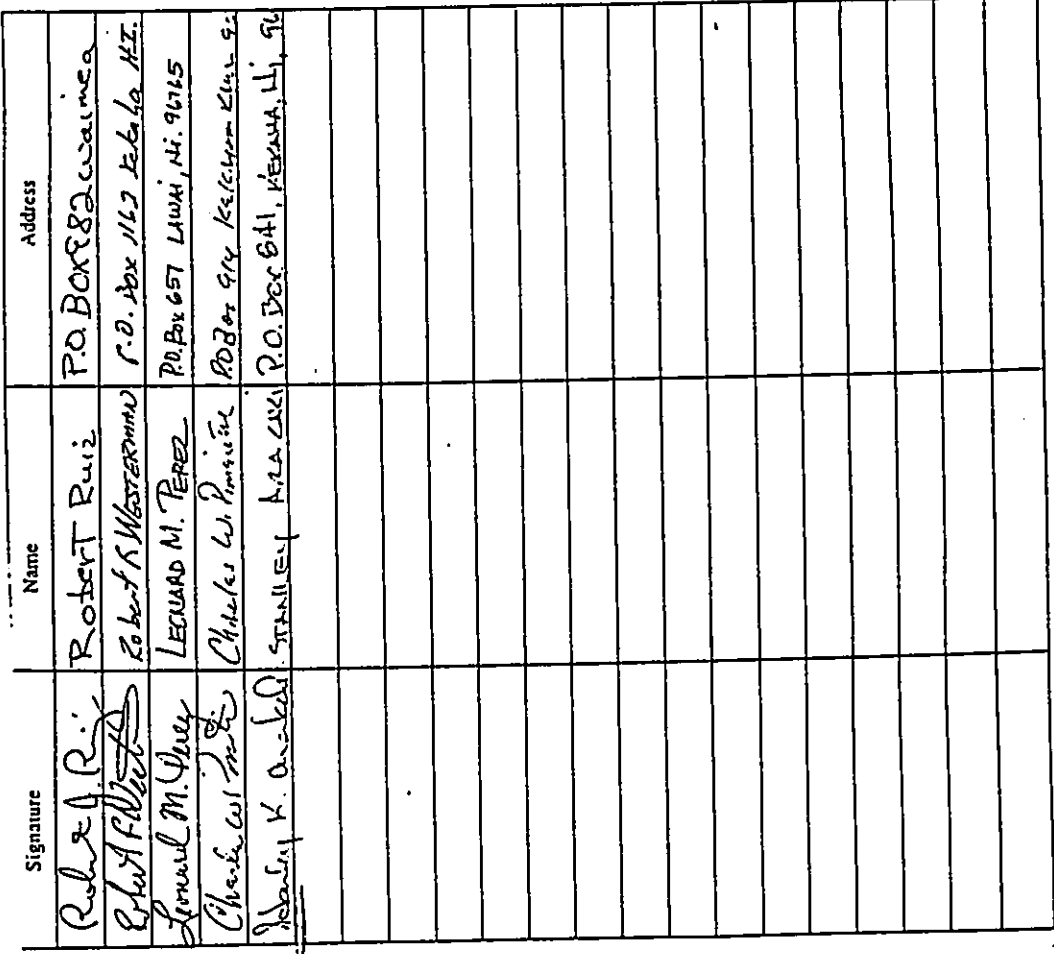 Signature Name Address
Robert J. Ruiz Robert Ruiz P.O. BOX 982 waimea
Robert R WESTERMAN P.O. Box 1163 Kekaha HI.
Leonard M. Perez LEONARD M. PEREZ P.O. Box 657 LAWAI, Hi. 96765
Charles W. Charles W. P.O Box 914
Stanley K. Arakaki STANLEY ARAKAKI P.O. Box 841, KEKAHA, Hi, 96